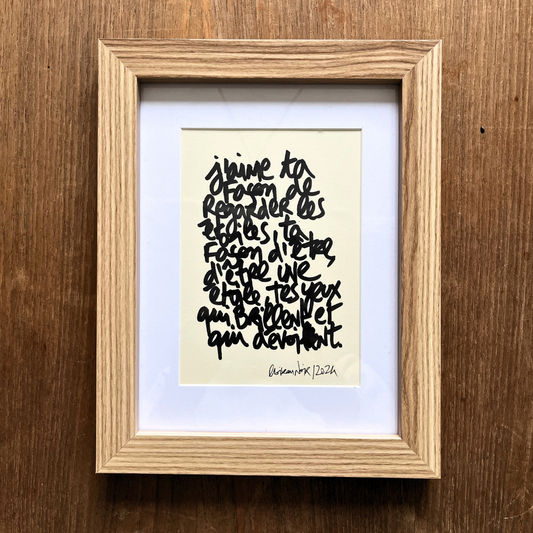 j'aime ta
façon de
regarder les
étoiles, ta
façon d'être,
d'être une
étoile, tes yeux
qui brillent et
qui dévorent.
/2024